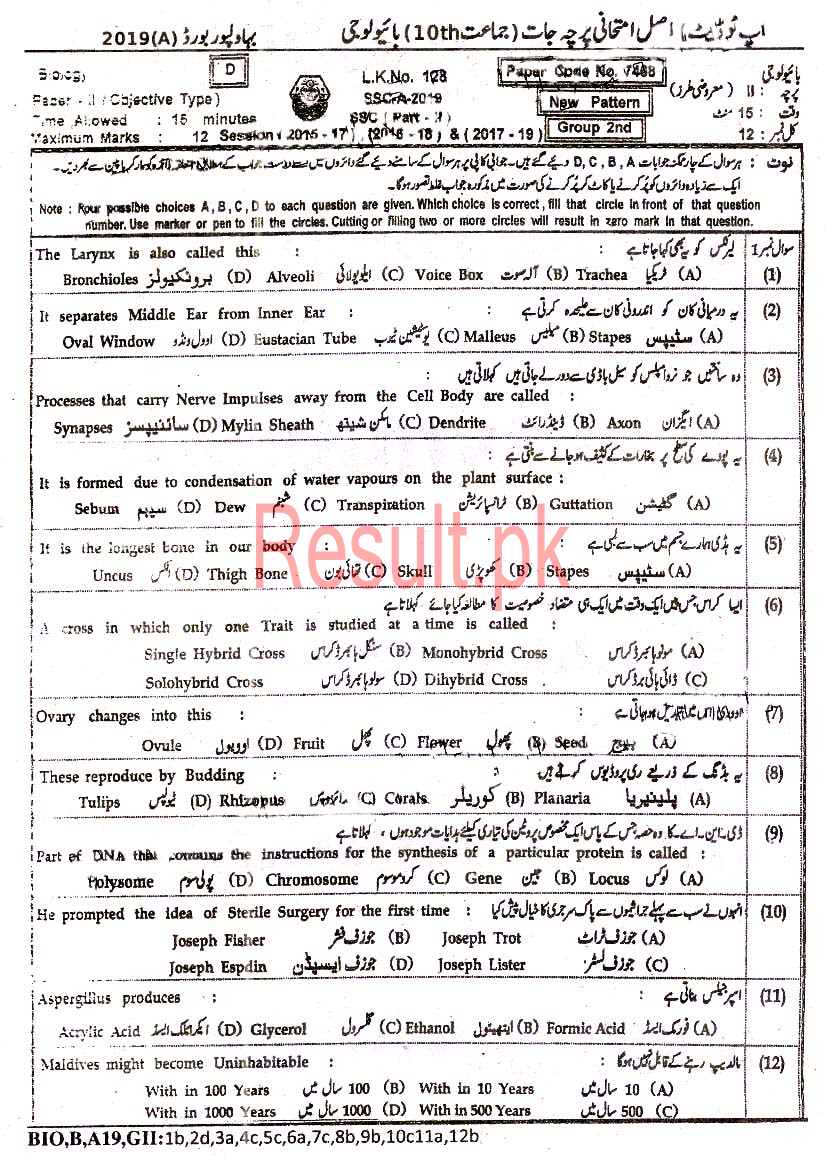 اپ ٹو ڈیٹ اصل امتحانی پرچہ جات (جماعت 10th) بائیولوجی بہاولپور بورڈ 2019(A)
Biology D L.K.No. 128 Paper Code No. 7488 بائیولوجی
Paper - II (Objective Type) SSC-A-2019 New Pattern پرچہ : II (معروضی طرز)
Time Allowed : 15 minutes SSC (Part - II) Group 2nd وقت : 15 منٹ
Maximum Marks : 12 Session (2015 - 17), (2016 - 18) & (2017 - 19) کل نمبر : 12
نوٹ : ہر سوال کے چار ممکنہ جوابات D, C, B, A دیئے گئے ہیں۔ جوابی کاپی پر ہر سوال کے سامنے دیئے گئے دائروں میں سے درست جواب کے مطابق متعلقہ دائرہ کو مارکر یا پین سے بھر دیں۔
ایک سے زیادہ دائروں کو پُر کرنے یا کاٹ کر پُر کرنے کی صورت میں مذکورہ جواب غلط تصور ہوگا۔
Note : Four possible choices A, B, C, D to each question are given. Which choice is correct, fill that circle in front of that question
number. Use marker or pen to fill the circles. Cutting or filling two or more circles will result in zero mark in that question.
The Larynx is also called this : لیرنکس کو یہ بھی کہا جاتا ہے : سوال نمبر 1
Bronchioles برونکیولز (D) Alveoli ایلویولائی (C) Voice Box آلہ صوت (B) Trachea ٹریکیا (A) (1)
It separates Middle Ear from Inner Ear : یہ درمیانی کان کو اندرونی کان سے علیحدہ کرتی ہے : (2)
Oval Window اوول ونڈو (D) Eustacian Tube یوسٹیشین ٹیوب (C) Malleus میلیس (B) Stapes سٹیپس (A)
وہ ساختیں جو نرو امپلس کو سیل باڈی سے دور لے جاتی ہیں کہلاتی ہیں : (3)
Processes that carry Nerve Impulses away from the Cell Body are called :
Synapses سائنیپسز (D) Mylin Sheath مائلن شیتھ (C) Dendrite ڈینڈرائٹ (B) Axon ایگزان (A)
یہ پودے کی سطح پر بخارات کے کثیف ہو جانے سے بنتی ہے : (4)
It is formed due to condensation of water vapours on the plant surface :
Sebum سیبم (D) Dew شبنم (C) Transpiration ٹرانسپائریشن (B) Guttation گٹیشن (A)
It is the longest bone in our body : یہ ہڈی ہمارے جسم میں سب سے لمبی ہے : (5)
Uncus انکس (D) Thigh Bone تھائی بون (C) Skull کھوپڑی (B) Stapes سٹیپس (A)
ایسا کراس جس میں ایک وقت میں ایک ہی متضاد خصوصیت کا مطالعہ کیا جائے کہلاتا ہے (6)
A cross in which only one Trait is studied at a time is called :
Single Hybrid Cross سنگل ہائبرڈ کراس (B) Monohybrid Cross مونو ہائبرڈ کراس (A)
Solohybrid Cross سولو ہائبرڈ کراس (D) Dihybrid Cross ڈائی ہائبرڈ کراس (C)
Ovary changes into this : اووری اس میں تبدیل ہو جاتی ہے : (7)
Ovule اوویول (D) Fruit پھل (C) Flower پھول (B) Seed بیج (A)
These reproduce by Budding : یہ بڈنگ کے ذریعے ری پروڈیوس کرتے ہیں : (8)
Tulips ٹیولپس (D) Rhizopus رائزوپس (C) Corals کوریلز (B) Planaria پلینیریا (A)
ڈی۔این۔اے۔کا وہ حصہ جس کے پاس ایک مخصوص پروٹین کی تیاری کیلئے ہدایات موجود ہوں ، کہلاتا ہے (9)
Part of DNA that contains the instructions for the synthesis of a particular protein is called :
Polysome پولی سوم (D) Chromosome کروموسوم (C) Gene جین (B) Locus لوکس (A)
He prompted the idea of Sterile Surgery for the first time : انہوں نے سب سے پہلے جراثیموں سے پاک سرجری کا خیال پیش کیا (10)
Joseph Fisher جوزف فشر (B) Joseph Trot جوزف ٹراٹ (A)
Joseph Espdin جوزف ایسپڈن (D) Joseph Lister جوزف لسٹر (C)
Aspergillus produces : اسپرجیلس بناتی ہے : (11)
Acrylic Acid ایکریلک ایسڈ (D) Glycerol گلسرول (C) Ethanol ایتھینول (B) Formic Acid فورمک ایسڈ (A)
Maldives might become Uninhabitable : مالدیپ رہنے کے قابل نہیں ہوگا : (12)
With in 100 Years 100 سال میں (B) With in 10 Years 10 سال میں (A)
With in 1000 Years 1000 سال میں (D) With in 500 Years 500 سال میں (C)
BIO,B,A19,GII:1b,2d,3a,4c,5c,6a,7c,8b,9b,10c11a,12b
Result.pk